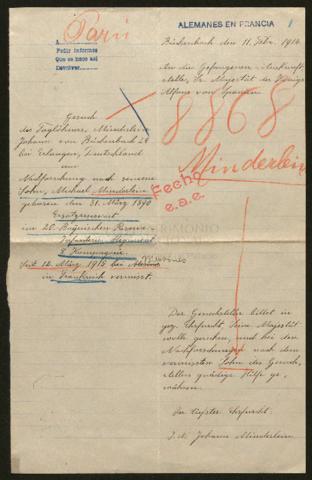 Paris
ALEMANES EN FRANCIA
1
A
Pedir informes
Que se hace así
Devolver
Büchenbach den 11. Febr. 1916
An die Gefangenen-Auskunft-
stelle, Sr. Majestät des Königs
Alfons von Spanien
8868
Minderlein
Fecho
e.a.e.
Gesuch
des Taglöhners, Minderlein
Johann von Büchenbach 24
bei Erlangen, Deutschland
um
Nachforschung nach seinem
Sohn, Michael Minderlein
geboren den 31. März 1890
Ersatzreservist
im 20. Bayrischen Reserve-
Infanterie Regiment
8. Kompagnie
Seit 12. März 1915 bei
in Frankreich vermisst.
Der Gesuchsteller bittet in
Ehrfurcht, Seine Majestät
wolle geruhen, auch bei den
Nachforschungen nach dem
vermissten Sohn des Gesuch-
stellers gnädige Hilfe ge-
währen.
In tiefster Ehrfurcht:
Johann Minderlein